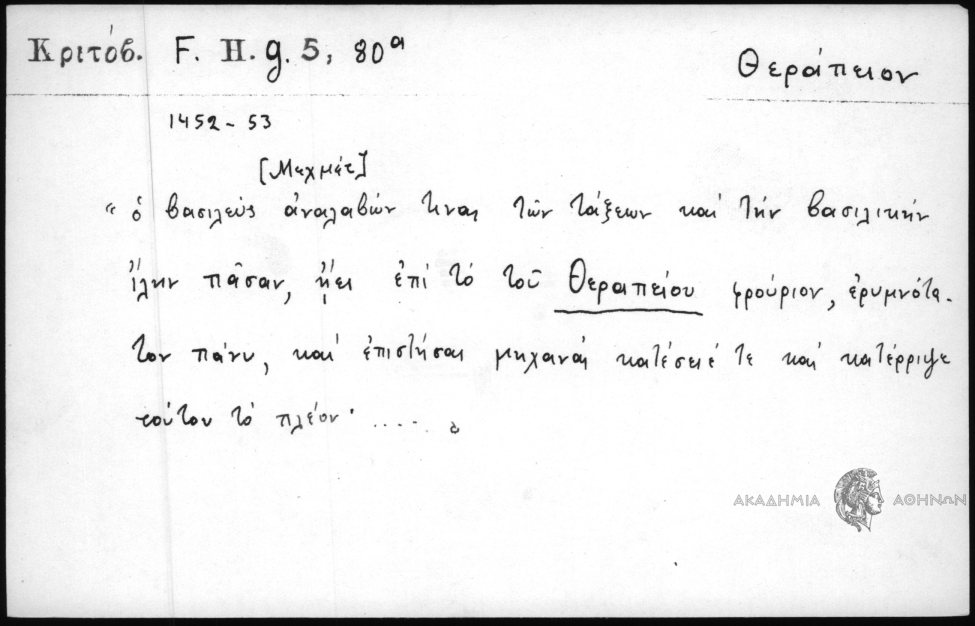 Κριτόβ. F. H. g. 5, 80ᵃ
Θεράπειον
1452 - 53
[Μεχμέτ]
"ὁ βασιλεὺς ἀναλαβών τινας τῶν τάξεων καὶ τὴν βασιλικὴν
ἴλην πᾶσαν, ᾔει ἐπὶ τὸ τοῦ Θεραπείου φρούριον, ἐρυμνότα-
τον πάνυ, καὶ ἐπιστήσας μηχανὰς κατέσεισέ τε καὶ κατέρριψε
τούτου τὸ πλέον· .....
ΑΚΑΔΗΜΙΑ ΑΘΗΝΩΝ